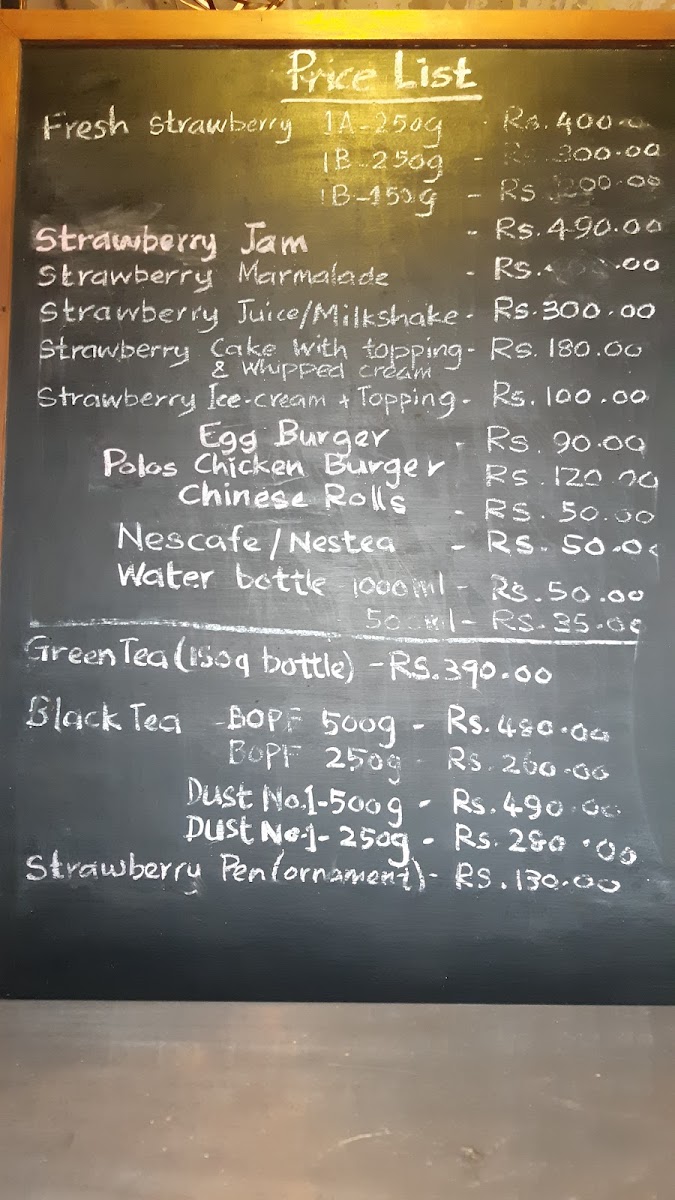 Price List
Fresh Strawberry 1A-250g - Rs. 400.00
1B-250g - Rs. 300.00
1B-150g - Rs 200.00
Strawberry Jam - Rs. 490.00
Strawberry Marmalade - Rs. .00
Strawberry Juice/Milkshake - Rs. 300.00
Strawberry Cake with topping - Rs. 180.00
& Whipped cream
Strawberry Ice-cream + Topping - Rs. 100.00
Egg Burger - Rs. 90.00
Polos Chicken Burger Rs. 120.00
Chinese Rolls - Rs. 50.00
Nescafe/Nestea - Rs. 50.00
Water bottle 1000ml - Rs. 50.00
500ml - Rs. 35.00
Green Tea (150g bottle) - RS. 390.00
Black Tea BOPF 500g - Rs. 480.00
BOPF 250g - Rs. 260.00
Dust No.1-500g - Rs. 490.00
Dust No.1-250g - Rs. 280.00
Strawberry Pen(ornament) - RS. 130.00